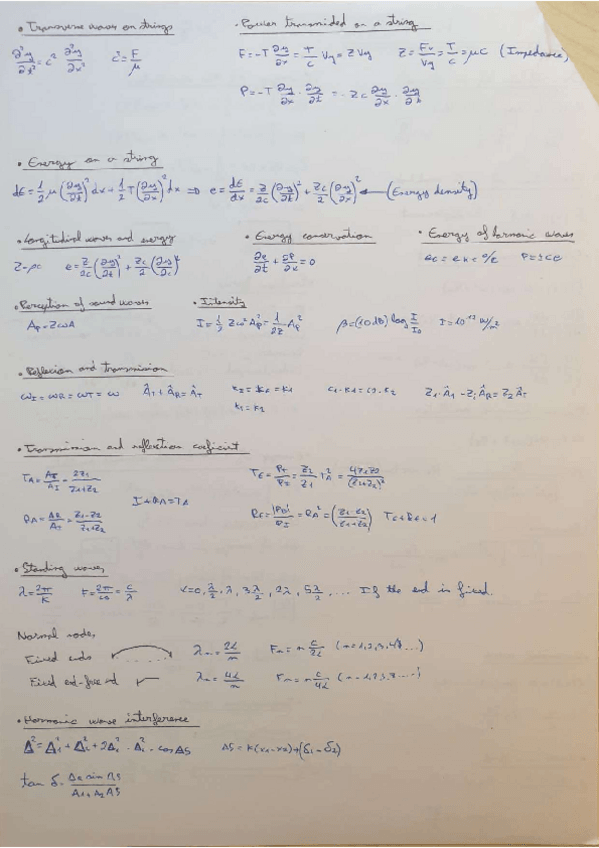 • Transverse waves on strings
∂²y/∂t² = c² ∂²y/∂x²   c² = F/μ
• Power transmided on a string
F = -T ∂y/∂x = T/c Vy = Z Vy   Z = Fy/Vy = T/c = μc (Impedance)
P = -T ∂y/∂x · ∂y/∂t = - Zc ∂y/∂x · ∂y/∂t
• Energy on a string
dE = 1/2 μ (∂y/∂t)² dx + 1/2 T (∂y/∂x)² dx ⇒ e = dE/dx = Z/2c (∂y/∂t)² + Zc/2 (∂y/∂x)² ← (Energy density)
• Longitudinal waves and energy
Z = ρc   e = Z/2c (∂y/∂t)² + Zc/2 (∂y/∂x)²
• Energy conservation
∂e/∂t + ∂P/∂x = 0
• Energy of harmonic waves
P = ± ce
• Perception of sound waves
Ap = ZωA
• Intensity
I = 1/2 Zω²A² = 1/2Z Ap²   β = (10 dB) log I/I₀   I = 10⁻¹² W/m²
• Reflexion and transmission
ωI = ωR = ωT = ω   ÂI + ÂR = ÂT   c₁·k₁ = c₂·k₂   Z₁·Â₁ - Z₁ÂR = Z₂ÂT
• Transmission and reflection coeficient
TA = AT/AI = 2Z₁/Z₁+Z₂
1 + RA = TA
RA = AR/AI = Z₁-Z₂/Z₁+Z₂
TE = PT/PI = Z₂/Z₁ TA² = 4Z₁Z₂/(Z₁+Z₂)²
RE = |PR|/PI = RA² = (Z₁-Z₂/Z₁+Z₂)²   TE + RE = 1
• Standing waves
λ = 2π/K   = c/λ   x = 0, λ/2, λ, 3λ/2, 2λ, 5λ/2, ... If the end is fixed.
Normal nodes,
Fixed ends   λn = 2L/n   Fn = n c/2L (n = 1,2,3,4 ...)
Fixed end-free end   λn = 4L/n   Fn = n c/4L
• Harmonic wave interference
A² = A₁² + A₂² + 2A₁ · A₂ · cos Δδ   Δδ = K(x₁-x₂) + (δ₁-δ₂)
tan δ